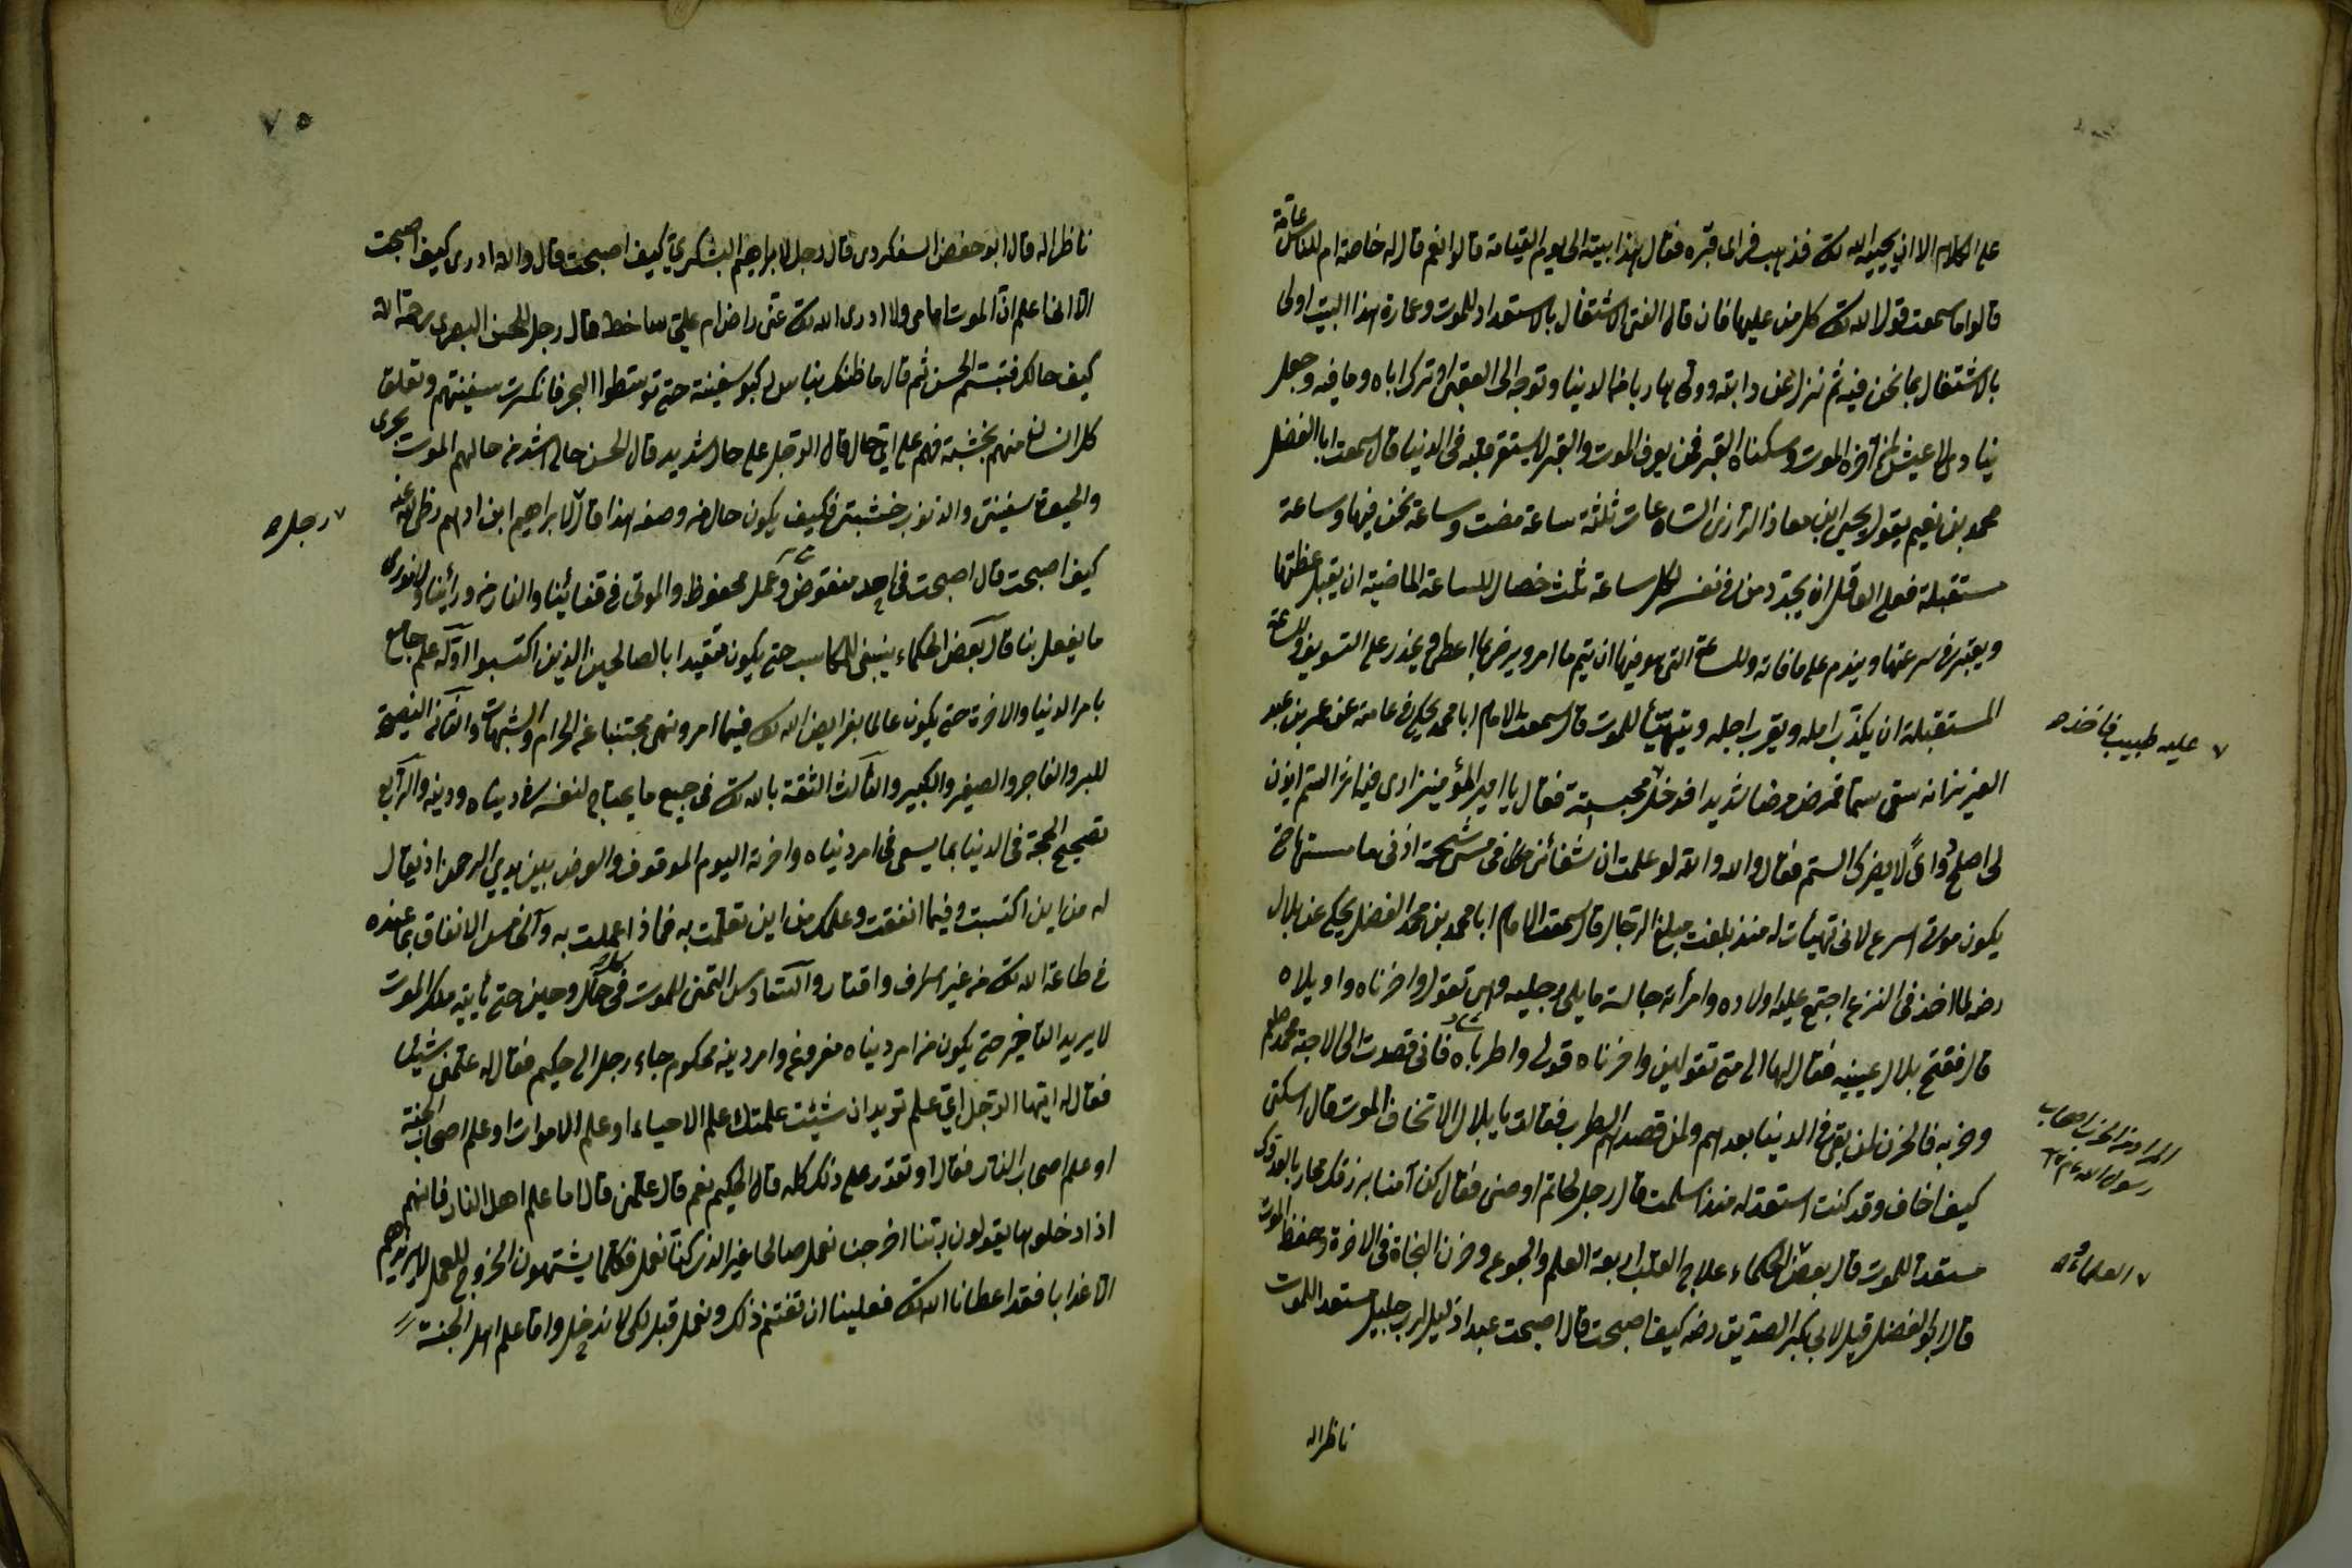 على الكلام الا ان يحييه الله تعالى فذهب فراى قبره فقال هذا بيته الى يوم القيامة قالوا نعم قال له خاصة ام للناس عامة
قالوا ما سمعت قول الله تعالى كل من عليها فان قال الفتى الاشتغال بالاستعداد للموت وعمارة هذا البيت اولى
بالاشتغال بما نحن فيه ثم نزل عن دابته وولى هاربا من الدنيا وتوجه الى العقبى وترك اباه وما فيه وجعل
ينادى لا عيش لمن آخره الموت وسكناه القبر فمن يعرف الموت والقبر لا يستقر قلبه فى الدنيا قال سمعت ابا الفضل
محمد بن نعيم يقول يحيى ابن معاذ الرازى الساعات ثلثة ساعة مضت وساعة نحن فيها وساعة
مستقبلة فعلى العاقل ان يجدد من نفسه لكل ساعة ثلث خصال للساعة الماضية ان يقبل عظتها
ويعتبر سرعتها ويندم على ما فاته وللساعة التى هو فيها ان يتم ما امر ويرضى بما اعطى ويحذر على التسويف وللساعة
المستقبلة ان يكذب امله ويقرب اجله ويتهيأ للموت قال سمعت الامام ابا محمد يحكى عن عمر بن عبد
العزيز انه سقى سما فمرض مرضا شديدا فدخل مجسته فقال يا امير المؤمنين ارى فيك اثر السم ايذن
لى اصلح دواء لا يضرك السم فقال والله والله لو علمت ان شفائى كان فى مس شحمة اذنى ما مسستها
يكون موتى اسرع لانى تهيأت له منذ بلغت مبلغ الرجال قال سمعت الامام ابا محمد بن محمد الفضل يحكى عن بلال
رضه لما اخذ فى النزع اجتمع عليه اولاده وامرأته جالسة مما يلى رجليه وهى تقول واحزناه واويلاه
قال ففتح بلال عينيه فقال لها الى متى تقولين واحزناه قولى واطرباه فانى قصدت الى الاحبة محمد صلعم
وحزبه فالحزن لمن بقى فى الدنيا بعدهم ولمن قصد اليهم الطرب فقالت يا بلال الا تخاف الموت قال اسكتى
كيف اخاف وقد كنت استعد له منذ اسلمت قال رجل لحاتم اوصنى فقال كن آمنا برزقك محاربا لعدوك
مستعدا للموت قال بعض الحكماء علاج القلب اربعة العلم والجوع وحزن النجاة فى الاخرة وحفظ الموت
قال ابو الفضل قيل لابى بكر الصديق رضه كيف اصبحت قال اصبحت عبدا ذليلا لرب جليل مستعدا للموت
ناظرا له
عليه طبيب فاخذ
المراد من الحزب اصحاب
رسول الله
العلماء و
٧٥
ناظرا له قال ابو حفص السفكردى قال رجل لابراهيم اليشكرى كيف اصبحت قال والله ادرى كيف اصبحت
الا انى اعلم ان الموت امامى ولا ادرى الله تعالى عنى راض ام على ساخط قال رجل للحسن البصرى رحمة الله
كيف حالك فتبسم الحسن ثم قال ما ظنك بناس ركبوا سفينة حتى توسطوا البحر فانكسرت سفينتهم وتعلق
كل انسان منهم بخشبة فهم على اى حال قال الرجل على حال شديد قال الحسن حالى اشد من حالهم الموت بحرى
والحيوة سفينتى والذنوب خشبتى فكيف يكون حال من وصفه هذا قال لابراهيم ابن ادهم رضى الله عنه
كيف اصبحت قال اصبحت فى اجل منقوض وعمل محفوظ والموتى فى قفائينا والنار من ورائنا ولا ندرى
ما يفعل بنا قال بعض الحكماء ينبغى للكاسب حتى يكون مقتديا بالصالحين الذين اكتسبوا اوله علم جامع
بامر الدنيا والاخرة حتى يكون عالما بفرايض الله تعالى فيما امر ونهى مجتنبا عن الحرام والشبهات والثانى النصيحة
للبر والفاجر والصغير والكبير والثالث الثقة بالله تعالى فى جميع ما يحتاج لنفسه فى دنياه ودينه والرابع
تصحيح الحجة فى الدنيا بما يسعى فى امر دنياه واخرته اليوم الموقوف والعرض بين يدى الرحمن اذ يقال
له من اين اكتسبت وفيما انفقت وعلمك من اين تعلمت به فماذا عملت به والخامس الانفاق بما عنده
فى طاعة الله تعالى من غير اسراف واقتار والسادس التمنى للموت فى كل حال وحين حتى يأتيه ملك الموت
لا يريد التأخير حتى يكون من امر دنياه مفروغ وامر دينه محكوم جاء رجل الى حكيم فقال له علمنى شيئا
فقال له ايها الرجل اى علم تريد ان شئت علمتك علم الاحياء او علم الاموات او علم اصحاب الجنة
او علم اصحاب النار فقال او تقدر على ذلك كله قال الحكيم نعم قال علمنى قال اما علم اهل النار فانهم
اذا دخلوها يقولون ربنا اخرجنا نعمل صالحا غير الذى كنا نعمل فكلما يشتهون الخروج للعمل لا يزيدهم
الا عذابا فقد اعطانا الله تعالى فعلينا ان نغتنم ذلك ونعمل قبل لكى لا ندخل واما علم اهل الجنة
رجل